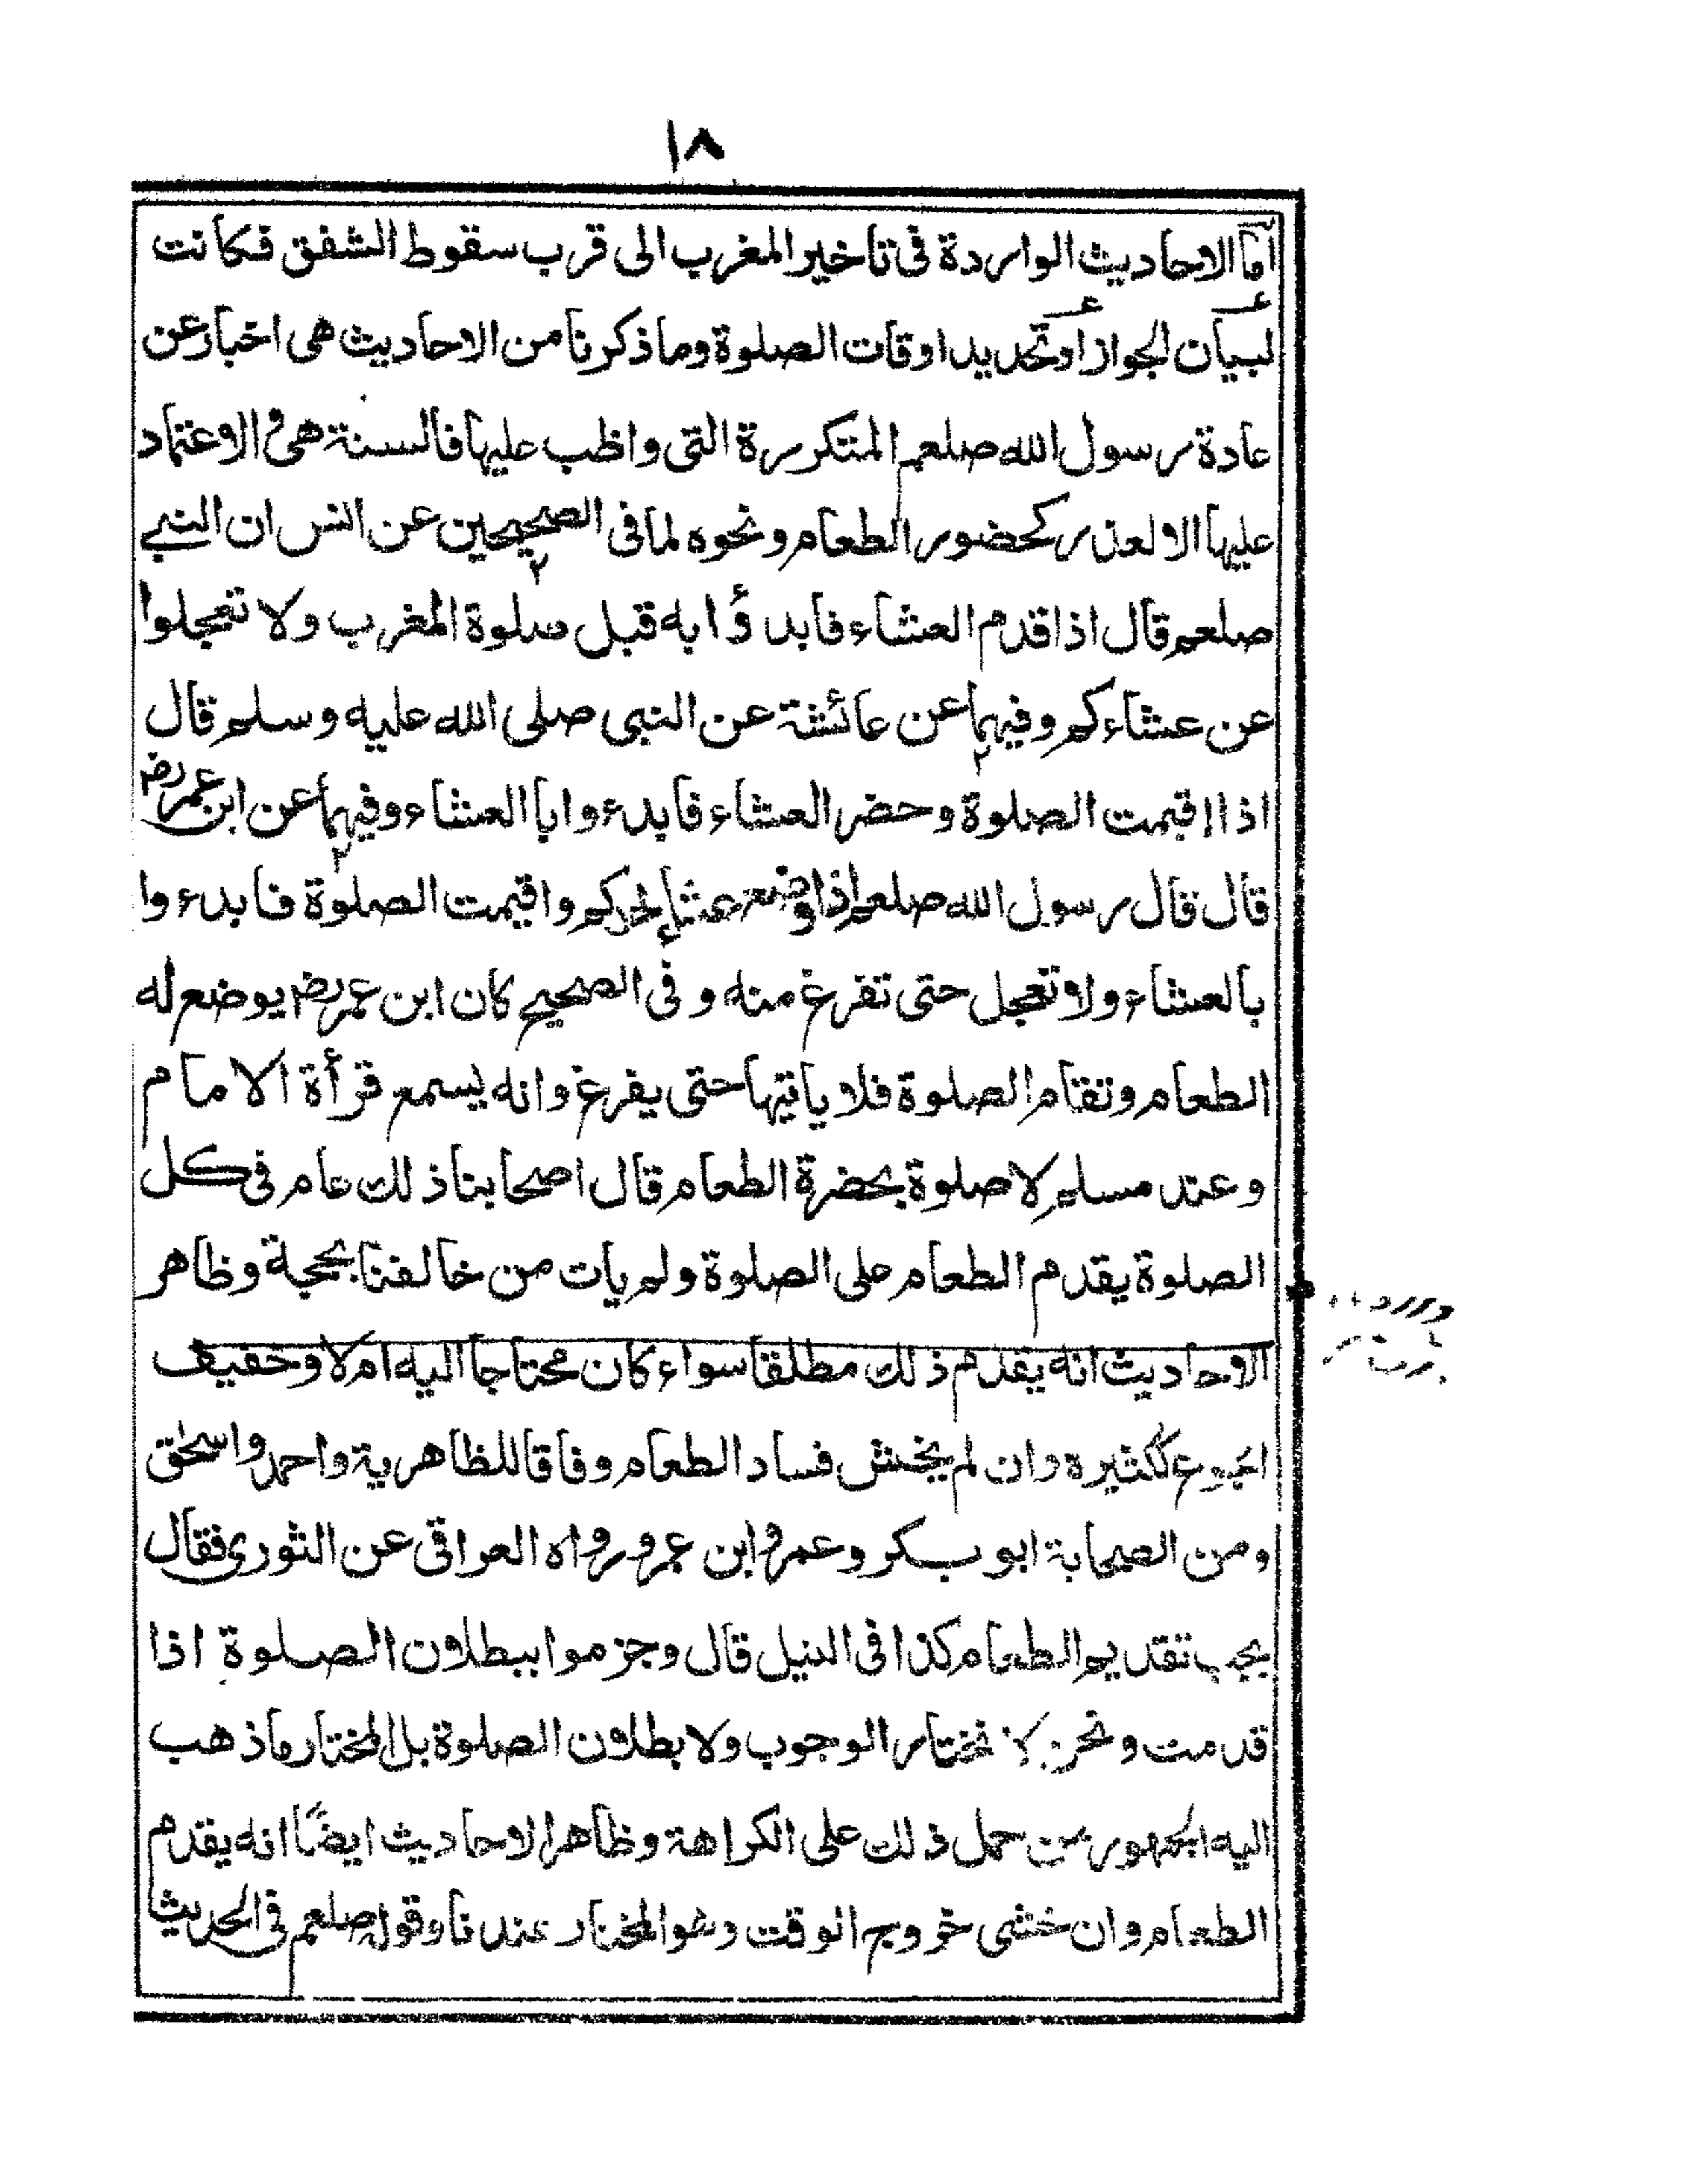 ١٨
اما الاحاديث الواردة فى تاخير المغرب الى قرب سقوط الشفق فكانت
لبيان الجواز او تحديد اوقات الصلوة وما ذكرنا من الاحاديث هى اخبار عن
عادة رسول الله صلعم المتكررة التى واظب عليها فالسنة هى والاعتماد
عليها الا لعذر كحضور الطعام ونحوه لما فى الصحيحين عن انس ان النبى
صلعم قال اذا قدم العشاء فابدؤا به قبل صلوة المغرب ولا تعجلوا
عن عشاءكم وفيهما عن عائشة عن النبى صلى الله عليه وسلم قال
اذا اقيمت الصلوة وحضر العشاء فابدءوا بالعشاء وفيهما عن ابن عمر رض
قال قال رسول الله صلعم اذا وضع عشاء احدكم واقيمت الصلوة فابدءوا
بالعشاء ولا تعجل حتى تفرغ منه وفى الصحيح كان ابن عمر رض يوضع له
الطعام وتقام الصلوة فلا ياتيها حتى يفرغ وانه ليسمع قرأة الامام
وعند مسلم لا صلوة بحضرة الطعام قال اصحابنا ذلك عام فى كل
الصلوة يقدم الطعام على الصلوة ولم يات من خالفنا بحجة وظاهر
الاحاديث انه يقدم ذلك مطلقا سواء كان محتاجا اليه ام لا وخفيف
الجوع ككثيره وان لم يخش فساد الطعام وفاقا للظاهرية واحمد واسحٰق
ومن الصحابة ابو بكر وعمر وابن عمر ورواه العراقى عن الثورى فقال
يجب تقديم الطعام كذا فى النيل قال وجزموا ببطلان الصلوة اذا
قدمت ونحن لا نختار الوجوب ولا بطلان الصلوة بل المختار ما ذهب
اليه الجمهور من حمل ذلك على الكراهة وظاهر الاحاديث ايضًا انه يقدم
الطعام وان خشى خروج الوقت وهو المختار عندنا وقوله صلعم فى الحديث